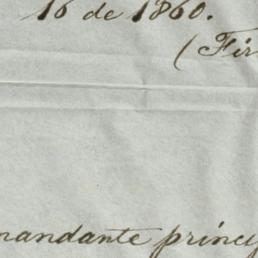 16 de 1860.
(Fir
mandante princip